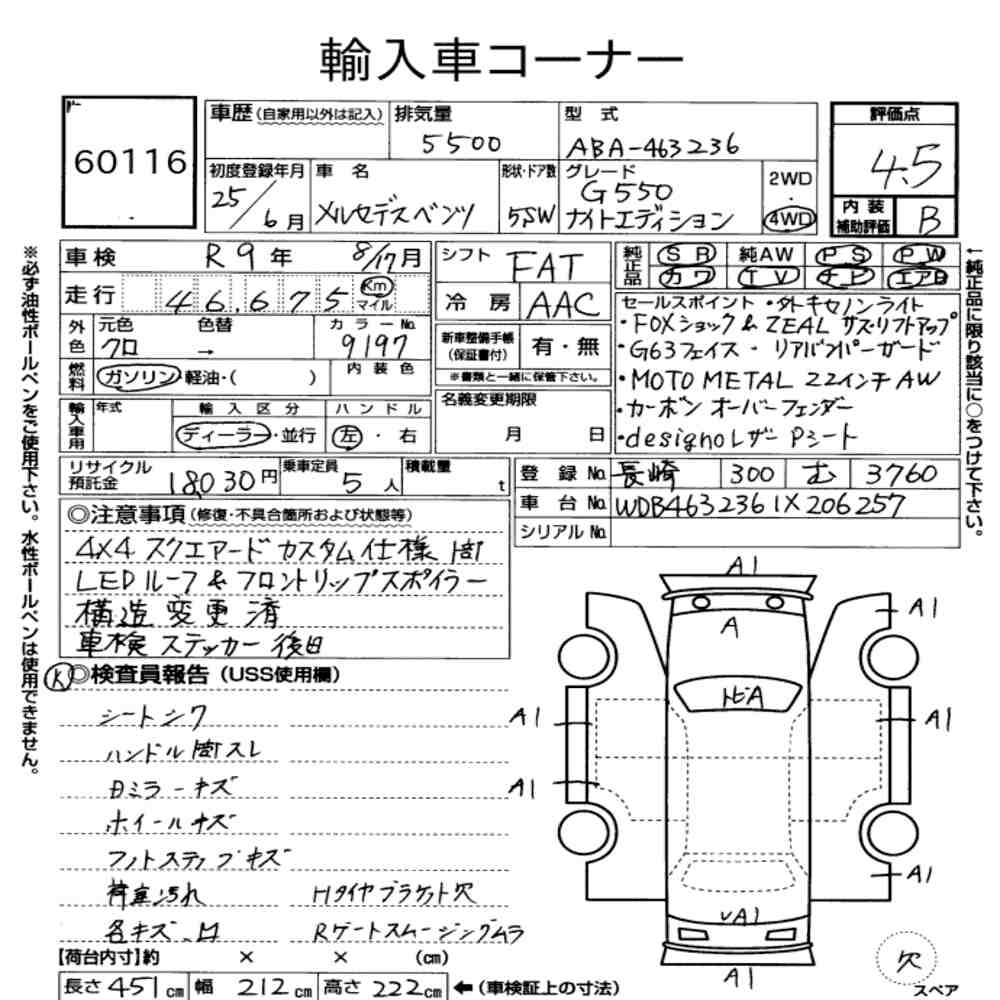 輸入車コーナー
60116
車歴 (自家用以外は記入)
排気量
5500
型式
ABA-463236
評価点
4.5
初度登録年月
25/6月
車名
メルセデスベンツ
形状・ドア数
5SW
グレード
G550
ナイトエディション
2WD
4WD
内装補助評価
B
車検 R9年 8/17月
走行 46,675 Km マイル
シフト FAT
冷房 AAC
純正品 SR 純AW PS PW
カワ TV ナビ エアB
外色 元色 クロ 色替 →
カラーNo. 9197
内装色
燃料 ガソリン・軽油・( )
新車整備手帳(保証書付) 有・無
※書類と一緒に保管下さい。
輸入車用 年式
輸入区分 ディーラー・並行
ハンドル 左・右
名義変更期限
月 日
セールスポイント ・外キセノンライト
・FOXショック & ZEAL サス・リフトアップ
・G63フェイス ・リアバンパーガード
・MOTO METAL 22インチAW
・カーボン オーバーフェンダー
・designoレザー Pシート
リサイクル預託金 18,030円
乗車定員 5人
積載量 t
登録No. 長崎 300 む 3760
車台No. WDB4632361X206257
シリアルNo.
◎注意事項 (修復・不具合箇所および状態等)
4X4 スクエアード カスタム仕様 同
LEDルーフ & フロントリップスポイラー
構造変更済
車検ステッカー後日
K ◎検査員報告 (USS使用欄)
シートシワ
ハンドル同スレ
Bミラーキズ
ホイールキズ
フットステップキズ
荷室汚れ Hタイヤブラケット欠
各キズ.凹 Rゲートスムージングムラ
A1
A
A1
トビA
A1
A1
A1
A1
A1
A1
欠
スペア
【荷台内寸】約 × × (cm)
長さ 451 cm 幅 212 cm 高さ 222 cm ←(車検証上の寸法)
※必ず油性ボールペンをご使用下さい。水性ボールペンは使用できません。
←純正品に限り該当に○をつけて下さい。